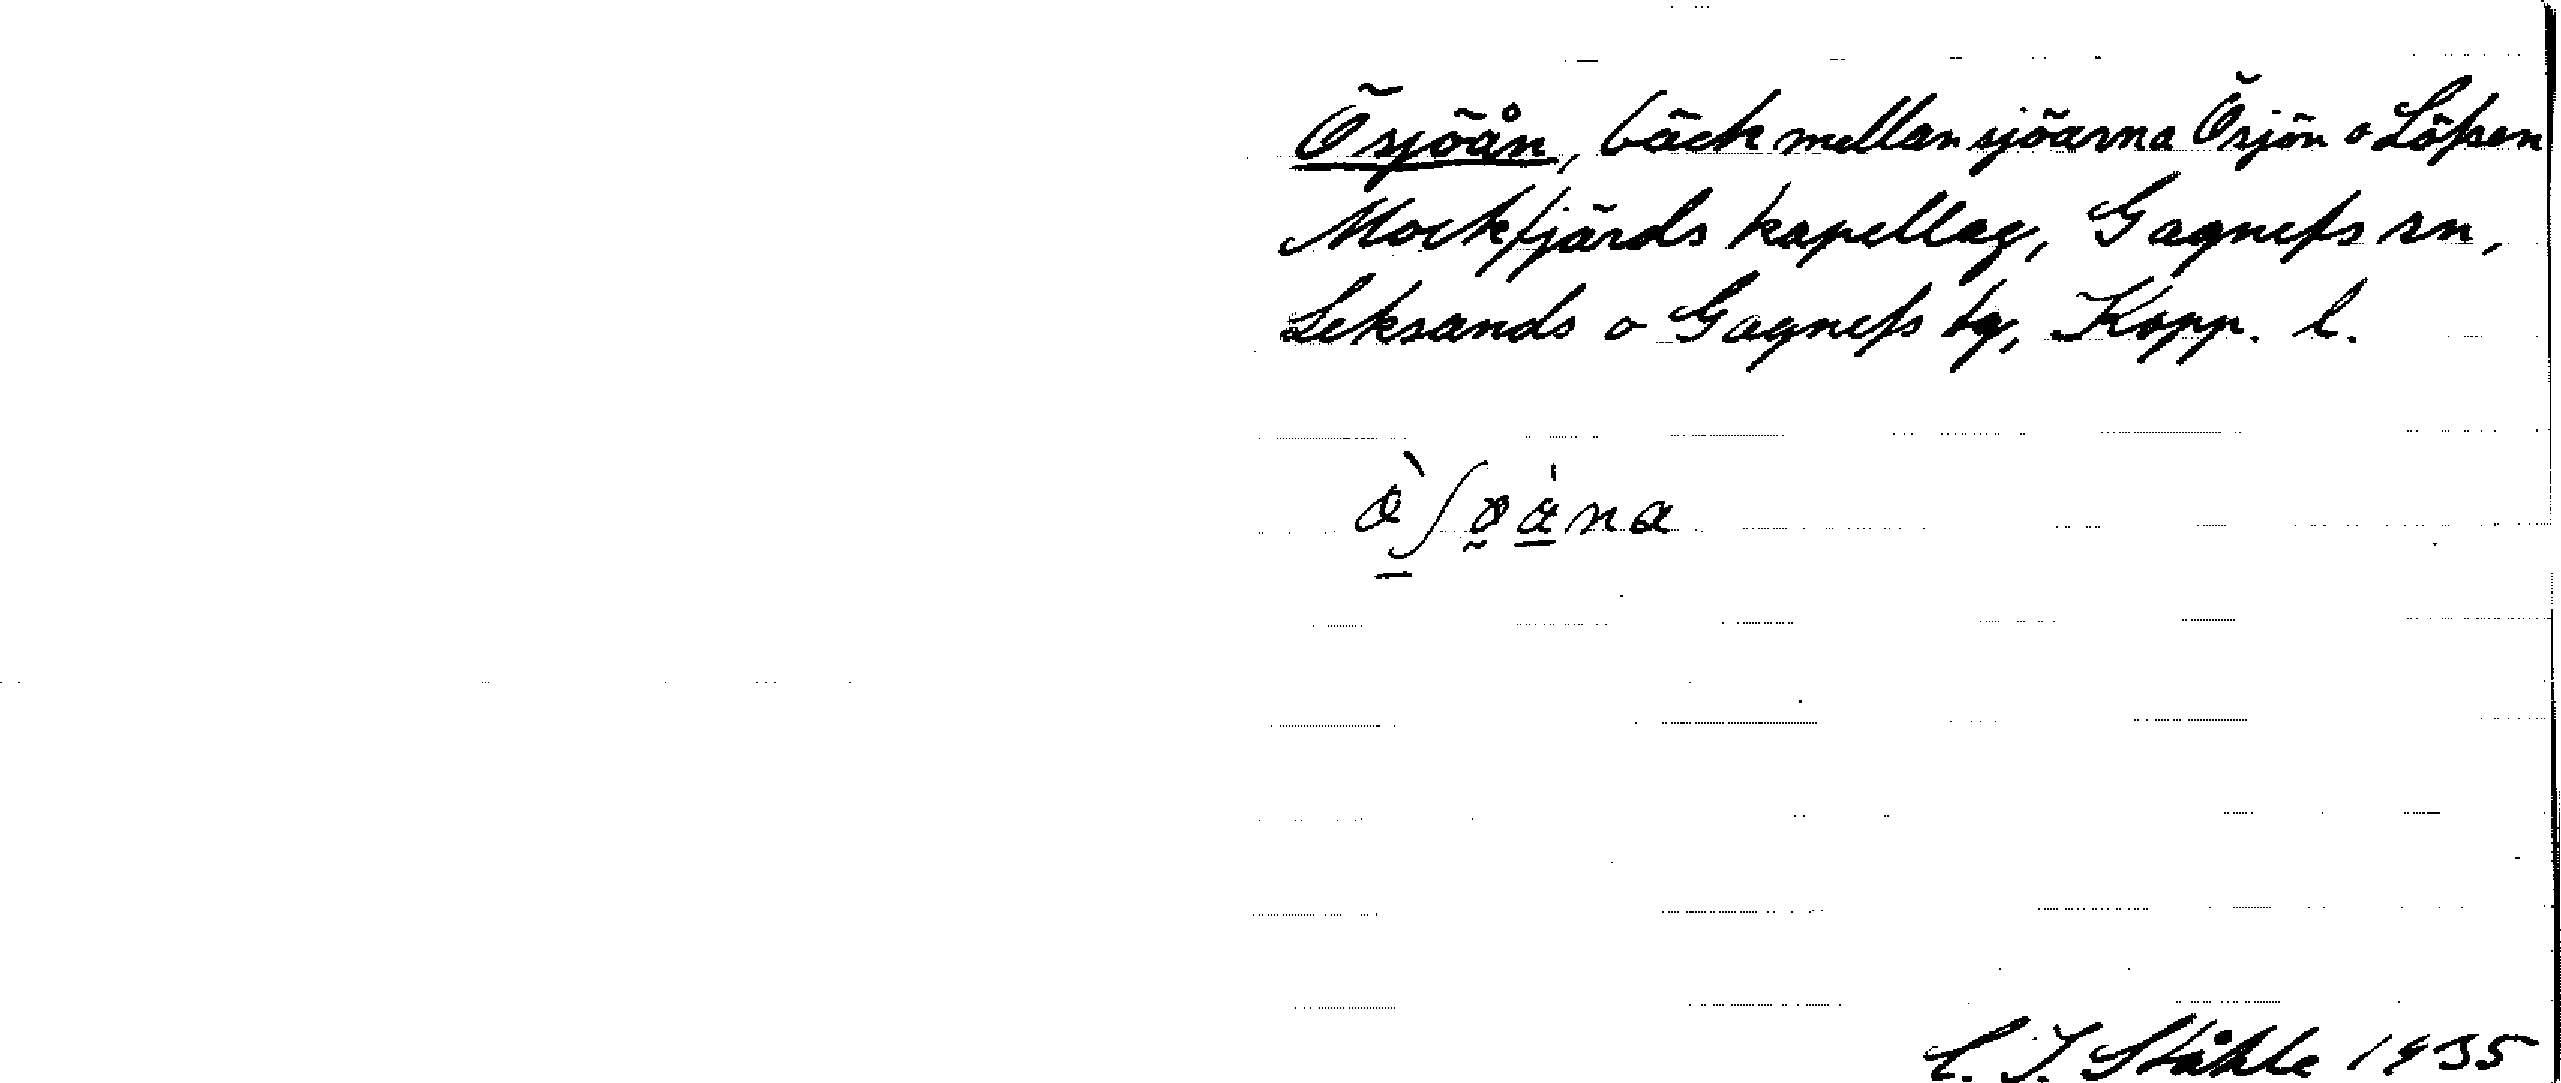 Ösjöån, bäck mellan sjöarna Ösjön o Löfsen
Mockfjärds kapellag, Gagnefs sn,
Leksands o Gagnefs tg, Kopp. l.
C. I. Ståhle 1935